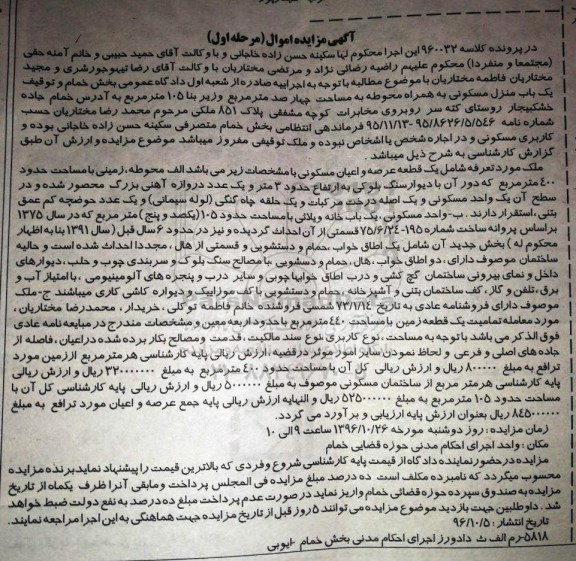 آگهی مزایده اموال (مرحله اول)
در پرونده کلاسه ۹۶۰۰۳۲ این اجرا محکوم لها سکینه حسن زاده خاجانی و با وکالت آقای حمید حبیبی و خانم آمنه حقی
(مجتمعا و منفردا) محکوم علیهم راضیه رضائی نژاد و مرتضی مختاریان با وکالت آقای رضا تیهوجورشری و مجید
مختاریان فاطمه مختاریان با موضوع مطالبه با توجه به اجراییه صادره از شعبه اول دادگاه عمومی بخش خمام و توقیف
یک باب منزل مسکونی به همراه محوطه به مساحت چهار صد مترمربع وزیر بنا ۱۰۵ مترمربع به آدرس خمام جاده
خشکبیجار روستای کته سر روبروی مخابرات کوچه مشفقی پلاک ۸۵۱ ملکی مرحوم محمد رضا مختاریان حسب
شماره نامه ۹۵/۸۶۲۶/۵/۵۴۶-۹۵/۱۱/۱۳ فرماندهی انتظامی بخش خمام متصرفی سکینه حسن زاده خاجانی بوده و
کاربری مسکونی و در اجاره شخص یا اشخاص نبوده و ملک توقیفی مفروز میباشد موضوع مزایده و ارزش آن طبق
گزارش کارشناسی به شرح ذیل میباشد.
ملک مورد تعرفه شامل یک قطعه عرصه و اعیان مسکونی با مشخصات زیر می باشد الف محوطه، زمینی با مساحت حدود
۴۰۰ مترمربع که دور آن با دیوار سنگ بلوکی به ارتفاع حدود ۳ متر و یک عدد دروازه آهنی بزرگ محصور شده و در
سطح آن یک واحد مسکونی و یک اصله درخت مرکبات و یک حلقه چاه گنگی (لوله سیمانی) و یک عدد حوضچه کم عمق
بتنی، استقرار دارند. ب-واحد مسکونی، یک باب خانه ویلائی با مساحت حدود ۱۰۵ (یکصد و پنج) متر مربع که در سال ۱۳۷۵
بر اساس پروانه ساخت شماره ۱۹۵-۷۵/۶/۲۴ قسمتی از آن احداث گردیده و نیز در حدود ۶ سال قبل (سال ۱۳۹۱ بنا به اظهار
محکوم له) بخش جدید آن شامل یک اطاق خواب، حمام و دستشویی و قسمتی از هال، مجددا احداث شده است و حالیه
ساختمان موصوف دارای: دو اطاق خواب، هال، حمام و دستویی با مصالح سنگ بلوک و سربندی چوب و حلب، دیوارهای
داخل و نمای بیرونی ساختمان گچ کشی و درب اطاق خوابها چوبی و سایر درب و پنجره های آلومینیومی، با امتیاز آب و
برق، تلفن و گاز، کف ساختمان بتنی و آشپزخانه، حمام و دستشویی با کف موزاییک و دیواره کاشی کاری میباشند. ج-ملک
موصوف دارای فروشنامه عادی به تاریخ ۷۳/۱/۱۴ شمسی فروشنده خانم فاطمه توکلی، خریدار، محمدرضا مختاریان،
مورد معامله تمامیت یک قطعه زمین با مساحت ۴۴۰ مترمربع با حدود اربعه معین و مشخصات مندرج در مبایعه نامه عادی
فوق الذکر می باشد با توجه به مساحت، نوع کاربری، نوع سند مالکیت، قدمت و مصالح بکار برده شده در اعیان، فاصله از
جاده های اصلی و فرعی و لحاظ نمودن سایر امور موثر در قضیه، ارزش ریالی پایه کارشناسی هر متر مربع از زمین مورد
ترافع به مبلغ ۸۰۰۰۰۰ ریال و ارزش ریالی کل آن با مساحت حدود ۴۰۰ مترمربع به مبلغ ۳۲۰۰۰۰۰۰۰ ریال و ارزش ریالی
پایه کارشناسی هر متر مربع از ساختمان مسکونی موصوف به مبلغ ۵۰۰۰۰۰۰ ریال و ارزش ریالی پایه کارشناسی کل آن با
مساحت حدود ۱۰۵ مترمربع به مبلغ ۵۲۵۰۰۰۰۰۰ ریال و النهایه ارزش ریالی پایه جمع عرصه و اعیان مورد ترافع به مبلغ
۸۴۵۰۰۰۰۰۰ ریال بعنوان ارزش پایه ارزیابی و برآورد می گردد.
زمان مزایده: روز دوشنبه مورخه ۱۳۹۶/۱۰/۲۶ ساعت ۹ الی ۱۰
مکان: واحد اجرای احکام مدنی حوزه قضایی خمام
مزایده در حضور نماینده دادگاه از قیمت پایه کارشناسی شروع و فردی که بالاترین قیمت را پیشنهاد نماید برنده مزایده
محسوب میگردد که نامبرده مکلف است ده درصد مبلغ مزایده فی المجلس پرداخت و مابقی آنرا ظرف یکماه از تاریخ
مزایده به صندوق سپرده حوزه قضائی خمام واریز نماید در صورت عدم پرداخت مبلغ ده درصد به نفع دولت ضبط خواهد
شد. داوطلبین جهت بازدید موضوع مزایده می توانند ۵ روز قبل از تاریخ مزایده جهت هماهنگی به این اجرا مراجعه نمایند.
تاریخ انتشار: ۹۶/۱۰/۵
۵۸۱۸-رم الف ث دادورز اجرای احکام مدنی بخش خمام -ایوبی